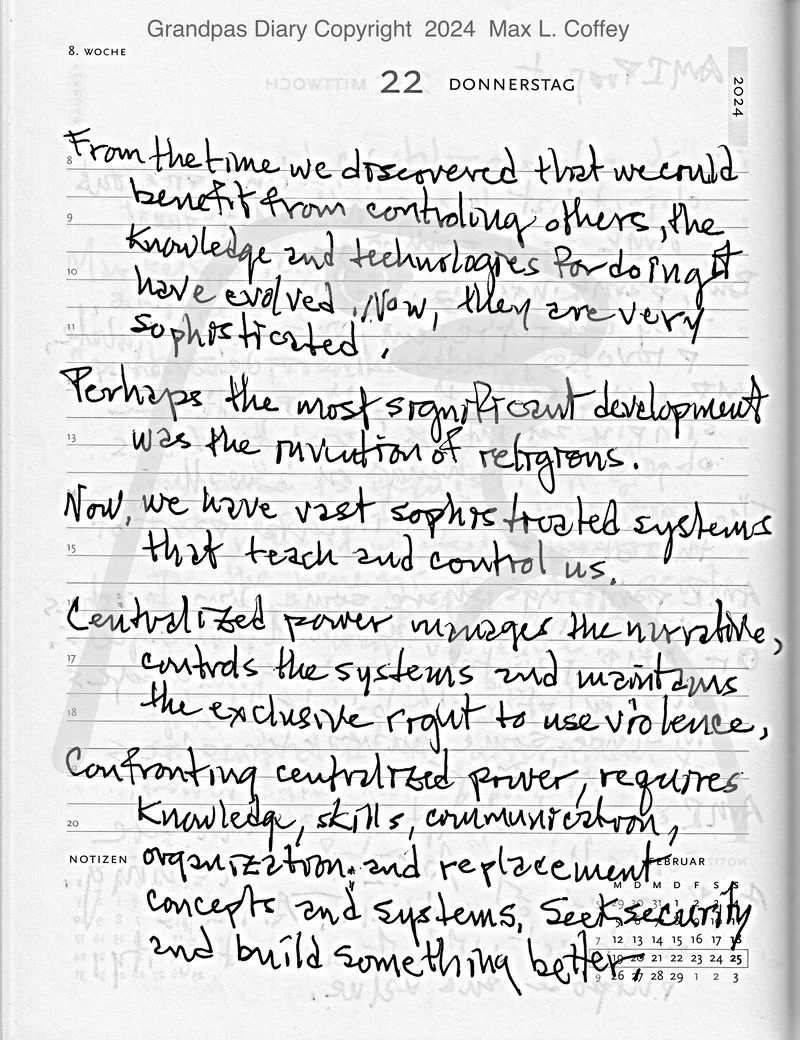 Grandpas Diary Copyright 2024 Max L. Coffey
8. WOCHE
22 DONNERSTAG
2024
MITTWOCH
8 From the time we discovered that we could
benefit from controling others, the
9
Knowledge and technologies for doing it
10
have evolved. Now, they are very
11
sophisticated.
Perhaps the most significant development
13 was the invention of religions.
Now, we have vast sophisticated systems
15 that teach and control us.
Centralized power manages the narrative,
17 controls the systems and maintains
18 the exclusive right to use violence,
Confronting centralized power, requires
20 Knowledge, skills, communication,
NOTIZEN organization and replacement
FEBRUAR
concepts and systems. Seek security
and build something better
M D M D F S S
7 12 13 14 15 16 17 18
19 20 21 22 23 24 25
9 26 27 28 29 1 2 3